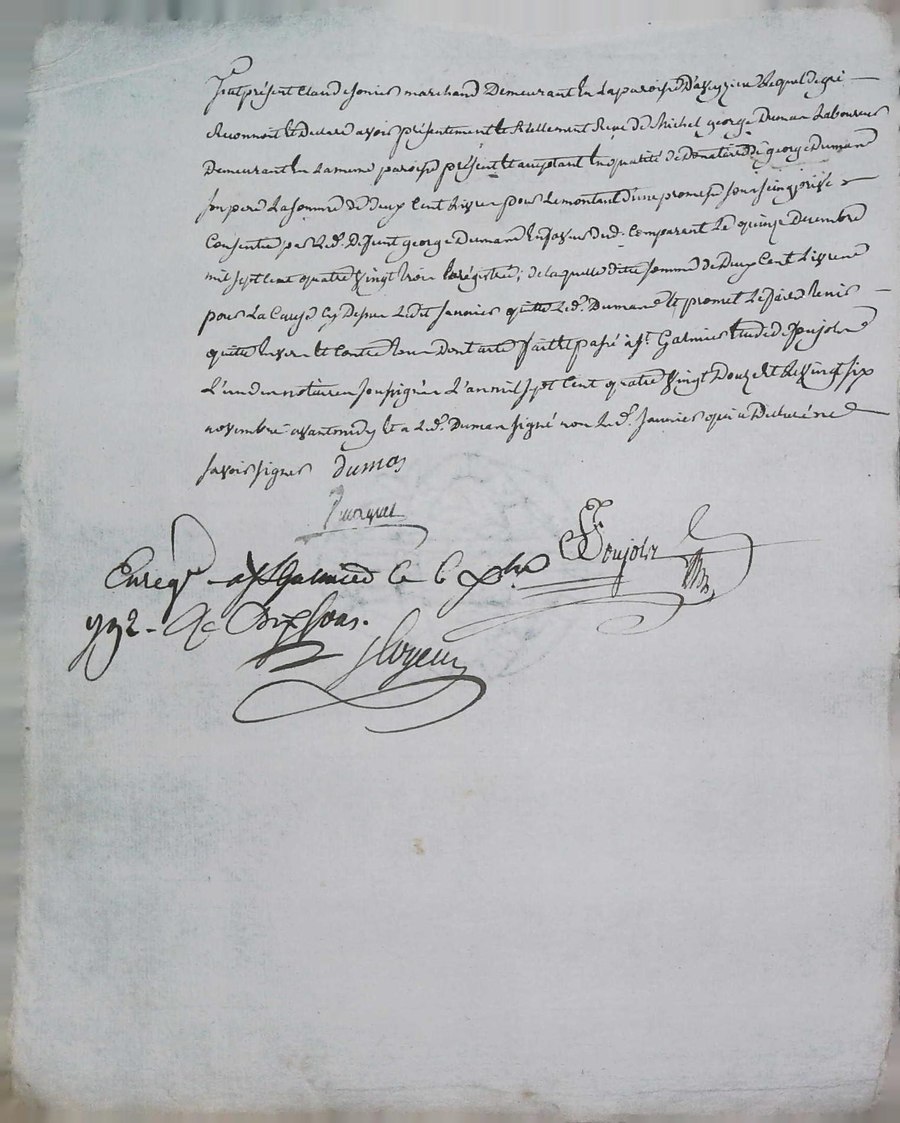 fut présent Claude Janier marchand Demeurant En La paroisse D'aveyzieu Lequel de gré
Reconnoit et Declare avoir présentement et Réellement Reçu de Michel george Dumas Laboureur
Demeurant En La meme paroisse présent et acceptant En qualité de Donataire de george Dumas
son pere La somme de Deux Cent Livres pour Le montant d'une promesse sous seing privé
Consentie par Led. Defunt george Dumas En faveur dud. Comparant Le quinze Decembre
mil sept Cent quatre Vingt trois Enregistré ; de laquelle ditte somme de Deux Cent Livres
pour La Cause Cy Dessus Ledit Janier quitte Led. Dumas Et promet Le faire tenir
quitte Envers Et Contre tous Dont acte fait Et passé a St Galmier Etude de poujol
L'un des notaires soussignés L'an mil sept Cent quatre Vingt Douze Et Le Vingt six
novembre avant midy Et a Led. Dumas signé non Led. Janier qui a Declaré ne
savoir signer dumas
Enregr. a St Galmier Le 6 xbre Poujol
1792. Rç Dix sous.